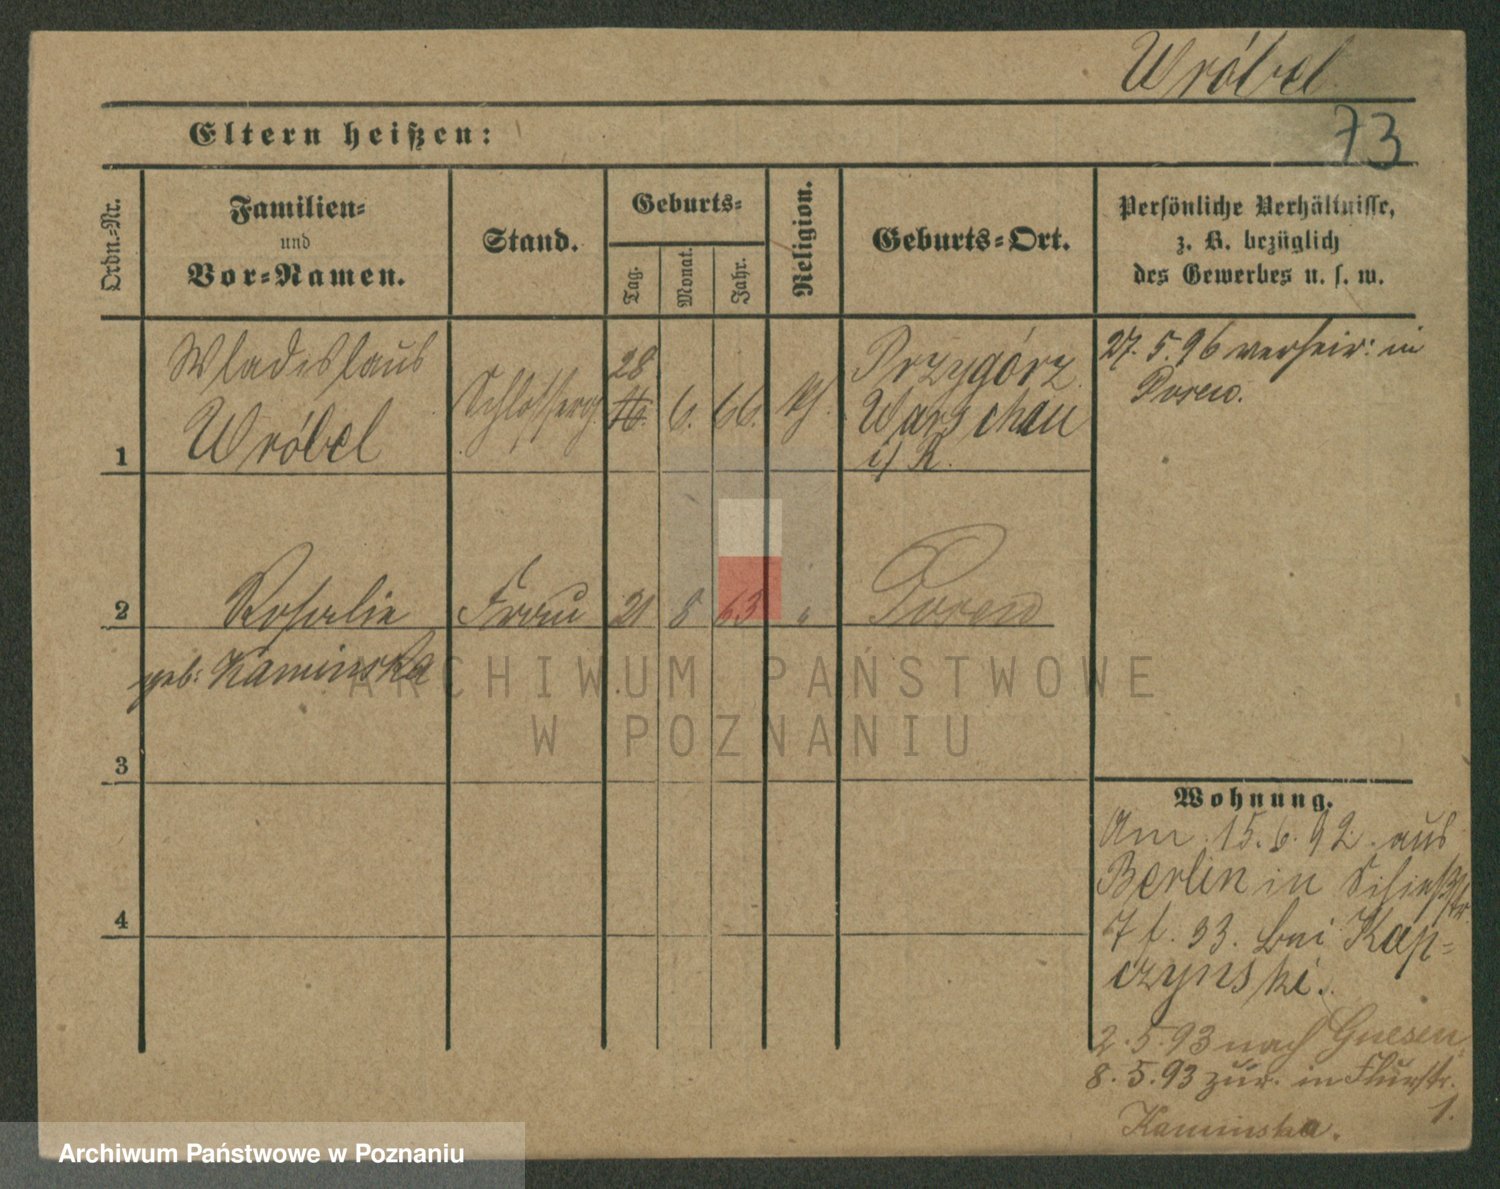 Wróbel
73
Eltern heißen:
Ordn.-Nr.
Familien-
und
Vor-Namen.
Stand.
Geburts-
Tag.
Monat.
Jahr.
Religion.
Geburts-Ort.
Persönliche Verhältnisse,
z. B. bezüglich
des Gewerbes u. s. w.
1
Wladislaus
Wróbel
Schlosserg.
28
16.
6.
66.
kth.
Przygórz
Warschau
i/R.
27. 5. 96 verheir: in
Posen.
2
Rosalie
geb: Kaminska
Frau
21
8
63
"
Posen
3
4
Wohnung.
Am 15. 6. 92. aus
Berlin in Schießstr.
7 b. 93. bei Kap-
czynski.
2. 5. 93 nach Gnesen
8. 5. 93 zür. in Flurstr.
1.
Kaminska.
ARCHIWUM PAŃSTWOWE
W POZNANIU
Archiwum Państwowe w Poznaniu